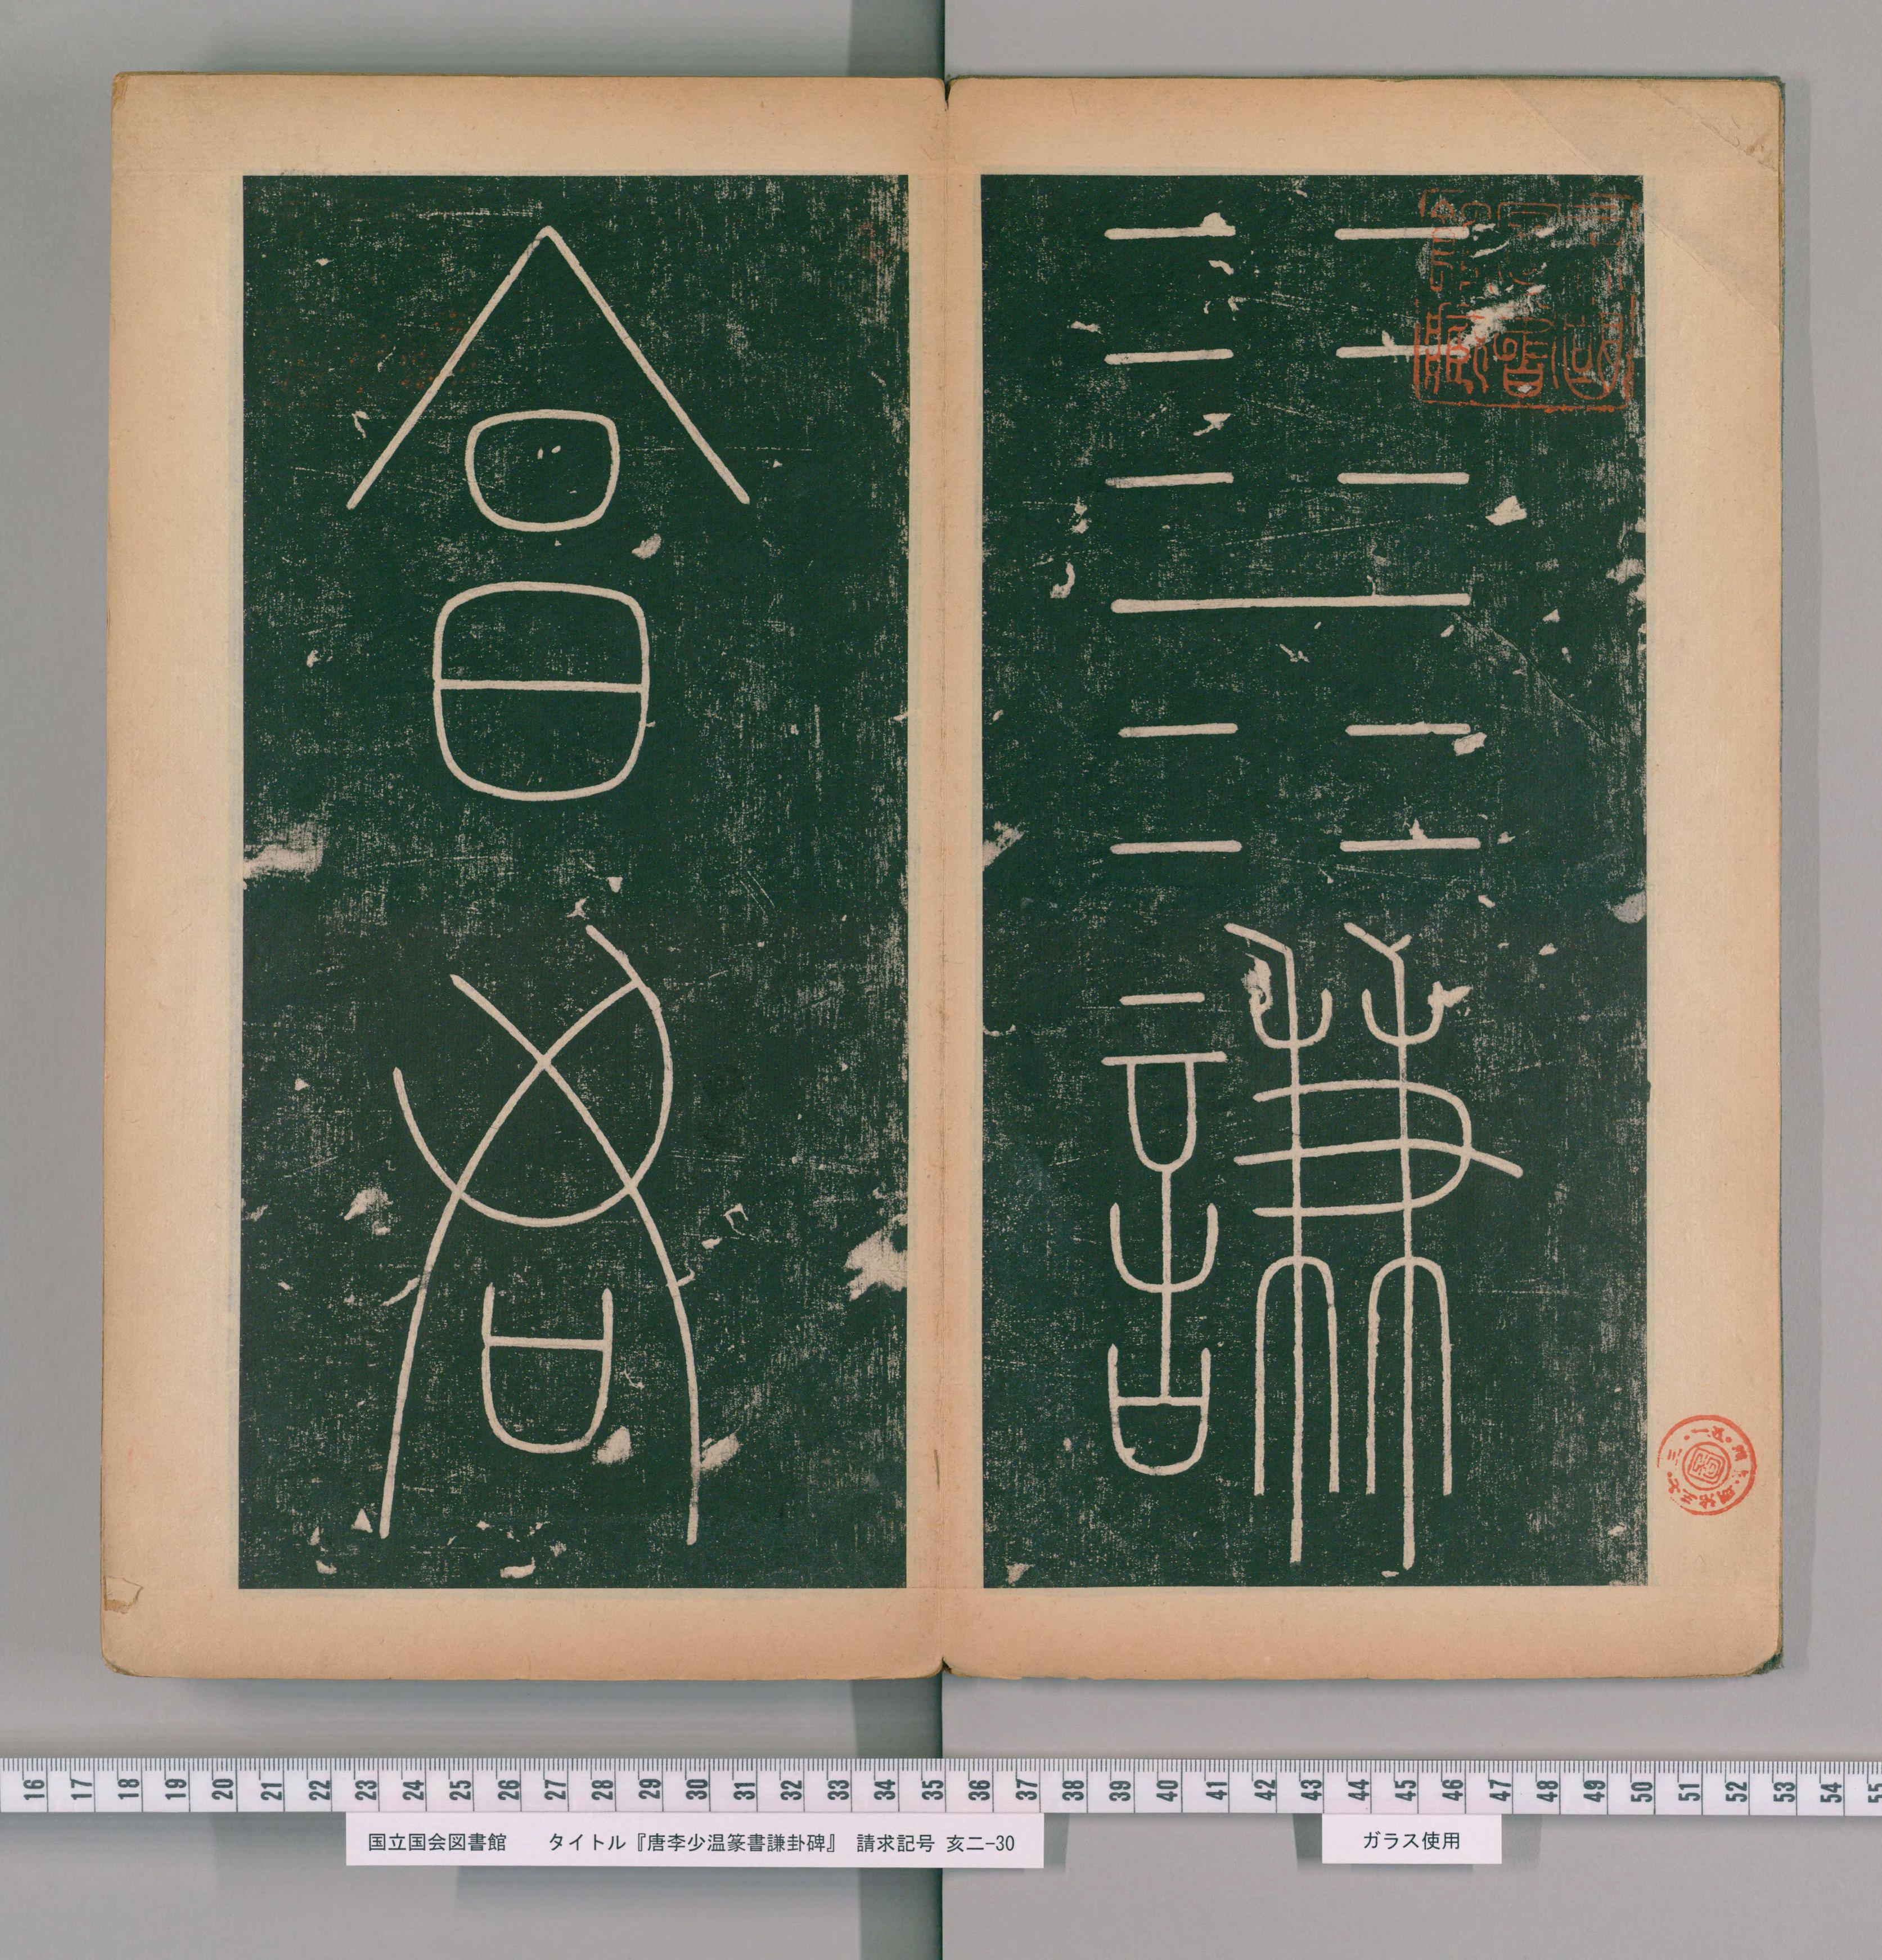 帝國圖書館藏
䷎
謙
亯
君
16 17 18 19 20 21 22 23 24 25 26 27 28 29 30 31 32 33 34 35 36 37 38 39 40 41 42 43 44 45 46 47 48 49 50 51 52 53 54 55
国立国会図書館 タイトル『唐李少温篆書謙卦碑』 請求記号 亥二-30
ガラス使用